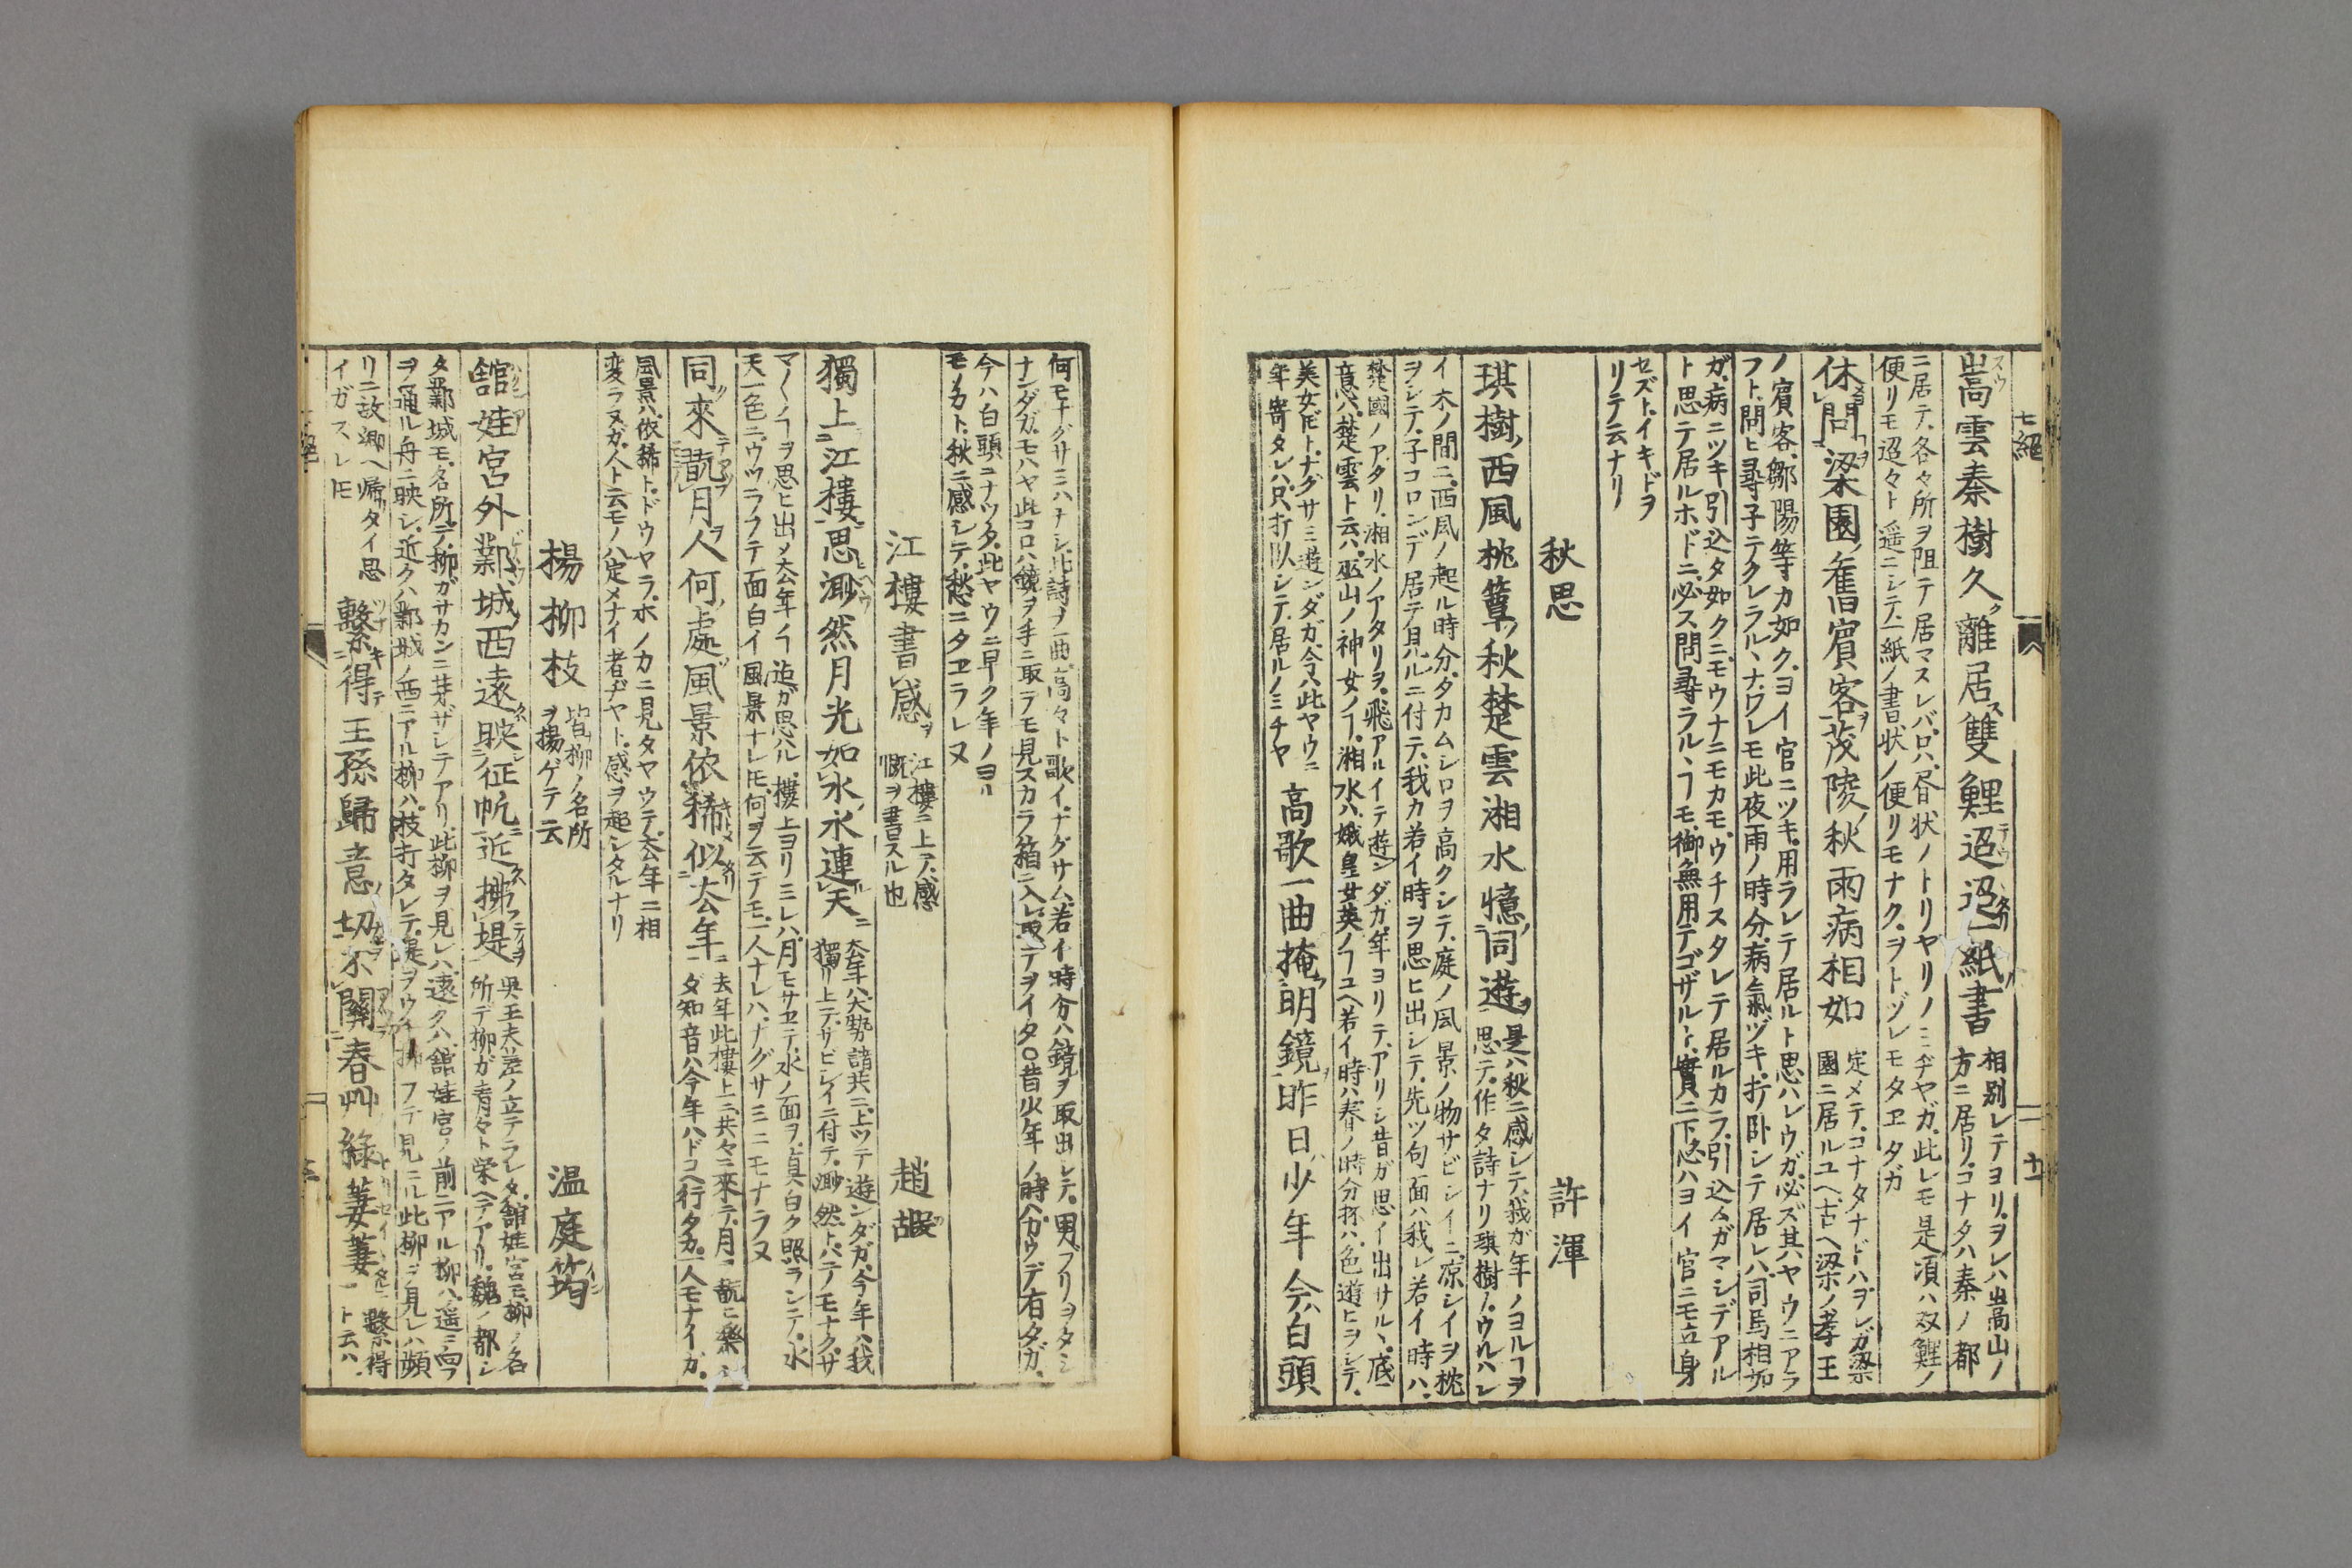 七絕
嵩雲秦樹久離居雙鯉迢迢一紙書
相別レテヨリ、ヲレハ嵩山ノ
方ニ居リ、コナタハ秦ノ都
ニ居テ、各々所ヲ阻テ居マスレバ、
便リモ迢々ト遥ニシテ、一紙ノ書状ノ便リモナク、ヲトヅレモタヱタガ
休問梁園舊賓客茂陵秋雨病相如
定メテ、コナタナドハ、ヲレガ梁
國ニ居ルユヘ、古ヘ梁ノ孝王
ノ賓客、鄒陽等カ如ク、ヨイ官ニツキ、用ラレテ居ルト思ハレウガ、必ズ其ハヤウニアラ
フト、問ヒ尋子テクレラルヽナ、ワレモ此夜雨ノ時分、病氣ヅキ、打卧シテ居レバ、司馬相如
ガ、病ニツキ引込タ如クニ、モウナニモカモ、ウチスタレテ居ルカラ、引込ムガマシデアル
ト思テ居ルホドニ、必ス問尋ラルヽヿモ、御無用テゴザルト、實ニ下心ハヨイ官ニモ立身
セズト、イキドヲ
リテ云ナリ
秋思
許渾
琪樹西風枕簟秋楚雲湘水憶同遊
是ハ秋ニ感シテ、我ガ年ノヨルヿヲ
思テ、作タ詩ナリ琪樹ノ、ウルハシ
イ木ノ間ニ、西風ノ起ル時分、タカムシロヲ高クシテ、庭ノ風景ノ物サビシイニ、凉シイヲ枕
ヲシテ、子コロンデ居テ見ルニ付テ、我カ若イ時ヲ思ヒ出シテ、先ツ句面ハ我レ若イ時ハ、
楚國ノアタリ、湘水ノアタリヲ、飛アルイテ遊ンダガ、年ヨリテ、アリシ昔ガ思イ出サルヽ、底
意ハ、楚雲ト云ハ、巫山ノ神女ノヿ、湘水ハ、娥皇女英ノヿユヘ若イ時ハ、春ノ時分抔ハ、色遊ヒヲシテ、
美女𪜈ト、ナグサミ遊ンダガ、今ハ此ヤウニ
年寄タレハ、只打臥シテ、居ルノミヂヤ
高歌一曲掩明鏡昨日少年今白頭
何モナグサミハナシ此詩ヲ一曲高々ト歌イ、ナグサム、若イ時分ハ鏡ヲ取出シテ、男ブリヲタシ
ナンダガ、モハヤ此コロハ鏡ヲ手ニ取ラモ見スカラ箱ニ入レ
昔少年ノ時ハ、カウデ有タガ、
今ハ白頭ニナツタ、此ヤウニ早ク年ノヨル
モノカト、秋ニ感シテ、愁ニタヱラレヌ
江樓書感
江樓ニ上テ、感
慨ヲ書スル也
趙嘏
獨上江樓思渺然月光如水水連天
去年ハ、大勢諸共ニ上ツテ遊ンダガ、今年ハ我
獨リ上テ、サビシイニ付テ、渺然トハテモナク、サ
マ〱ノヿヲ思ヒ出ス去年ノヿ追ガ思ハル、樓上ヨリミレハ、月モサヱテ、水ノ面ヲ、眞白ク照ランテ、水
天一色ニ、ウツラフテ面白イ風景ナレ𪜈、何ヲ云テモ、一人ナレハ、ナグサミニモナラヌ
同來翫月人何處風景依稀似去年
去年此樓上ニ、共々ニ來テ、月ヲ翫ヒ樂シ
タ知音ハ、今年ハドコヘ行タカ、一人モナイガ、
風景ハ、依稀ト、ドウヤラ、ホノカニ見タヤウテ、去年ニ相
変ラヌガ、人ト云モノハ定メナイ者ヂヤト、感ヲ起シタルナリ
楊柳枝
皆柳ノ名所
ヲ揚ゲテ云
温庭筠
舘娃宮外鄴城西遠映征帆近拂堤
呉王夫差ノ立テラレタ、舘娃宮モ、柳ノ名
所デ柳ガ青々ト栄ヘテアリ、魏ノ都シ
タ鄴城モ、名所デ、柳ガサカンニ芽ザシテアリ、此柳ヲ見レハ、遠クハ、舘娃宮ノ前ニアル柳ハ、遥ニ向フ
ヲ通ル舟ニ映シ、近クハ、鄴城ノ西ニアル柳ハ、枝打タレテ、堤ヲウチ拂フテ見ヱル此柳ヲ見レハ頻
リニ故郷ヘ帰タイ思
イガスレ𪜈
繫得王孫歸意切不關春艸綠萋萋
繫得
ト云ハ、